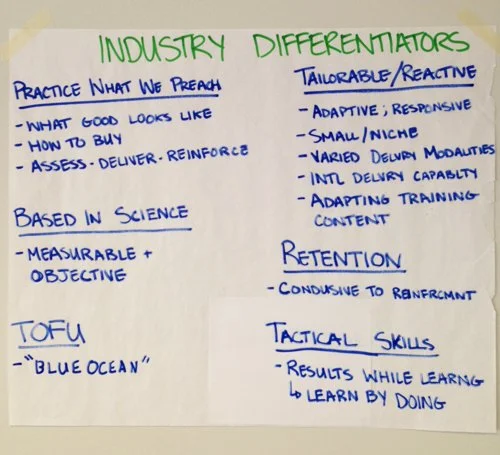 INDUSTRY DIFFERENTIATORS
PRACTICE WHAT WE PREACH
- WHAT GOOD LOOKS LIKE
- HOW TO BUY
- ASSESS - DELIVER - REINFORCE
BASED IN SCIENCE
- MEASURABLE +
OBJECTIVE
TOFU
- "BLUE OCEAN"
TAILORABLE/REACTIVE
- ADAPTIVE ; RESPONSIVE
- SMALL/NICHE
- VARIED DELVRY MODALITIES
- INTL DELVRY CAPABLTY
- ADAPTING TRAINING
CONTENT
RETENTION
- CONDUSIVE TO REINFRCMNT
TACTICAL SKILLS
- RESULTS WHILE LEARNG
↳ LEARN BY DOING